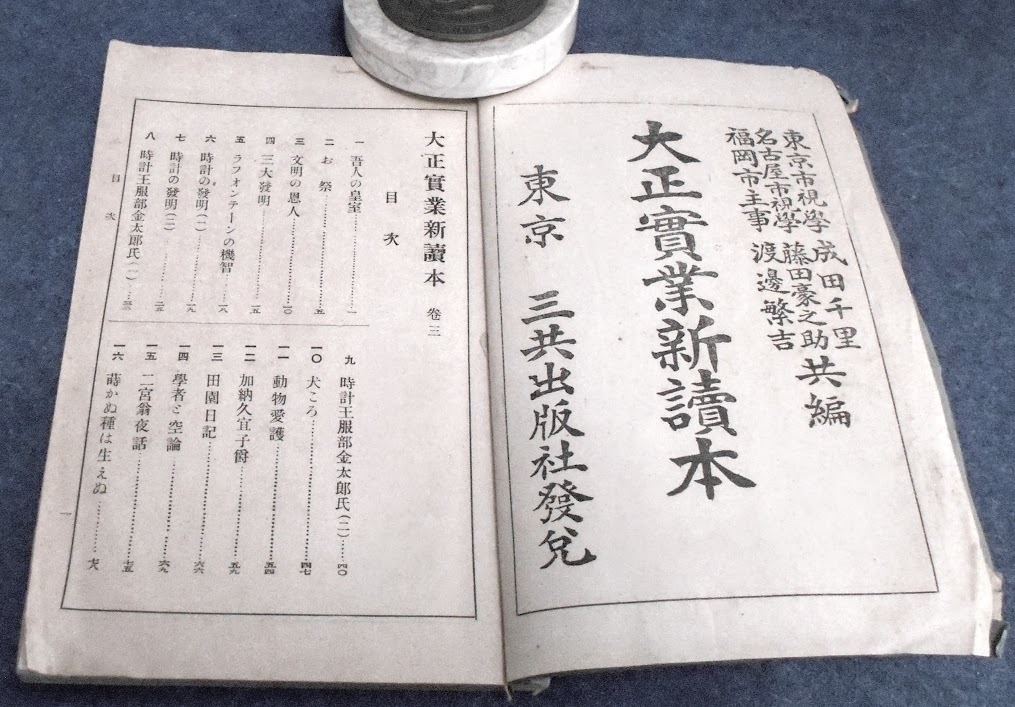 東京市視學 成田千里
名古屋市視學 藤田豪之助 共編
福岡市主事 渡邊繁吉
大正實業新讀本
東京 三共出版社發兌
大正實業新讀本 卷三
目次
一 吾人の皇室……一
二 お祭……五
三 文明の恩人……一〇
四 三大發明……一五
五 ラフオンテーンの機智……一八
六 時計の發明(一)……一九
七 時計の發明(二)……二五
八 時計王服部金太郎氏(一)……三三
九 時計王服部金太郎氏(二)……四〇
一〇 犬ころ……四七
一一 動物愛護……五四
一二 加納久宜子爵……五九
一三 田園日記……六六
一四 學者と空論……六九
一五 二宮翁夜話……七五
一六 蒔かぬ種は生えぬ……七八
目次
一